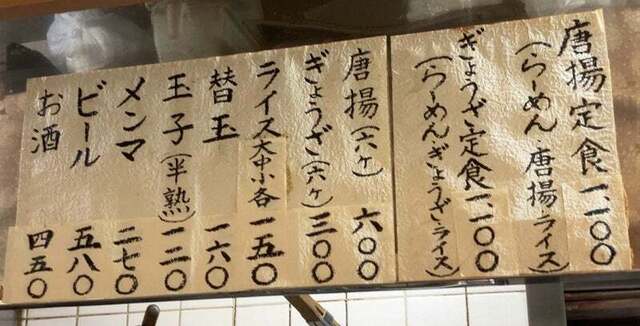 唐揚定食 一、一〇〇
(らーめん 唐揚 ライス)
ぎょうざ定食 一、一〇〇
(らーめん ぎょうざ ライス)
唐揚(六ヶ) 六〇〇
ぎょうざ(六ヶ) 三〇〇
ライス大中小各 一五〇
替玉 一六〇
玉子(半熟) 一二〇
メンマ 二七〇
ビール 五八〇
お酒 四五〇